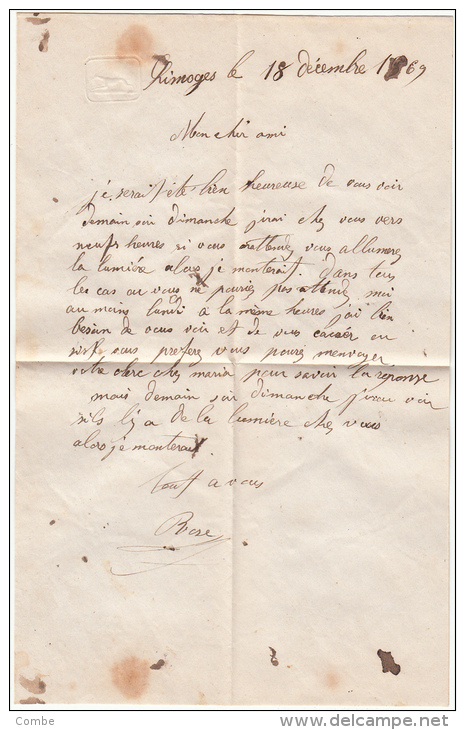 Limoges le 18 décembre 1869
Mon cher ami
je serait été bien heureuse de vous voir
demain soir dimanche j'irai chez vous vers
neufs heures si vous mattendez vous allumerez
la lumière alors je monterait. Dans tous
les cas ou vous ne pouriez pas attendez moi
au moins lundi a la même heures j'ai bien
besoin de vous voir et de vous causer ou
si vous preferez vous pourez menvoyer
votre clerc chez maria pour savoir la réponse
mais demain soir dimanche j'irai voir
sils l y a de la lumière chez vous
alors je monterai
tout a vous
Rose
Combe
www.delcampe.net